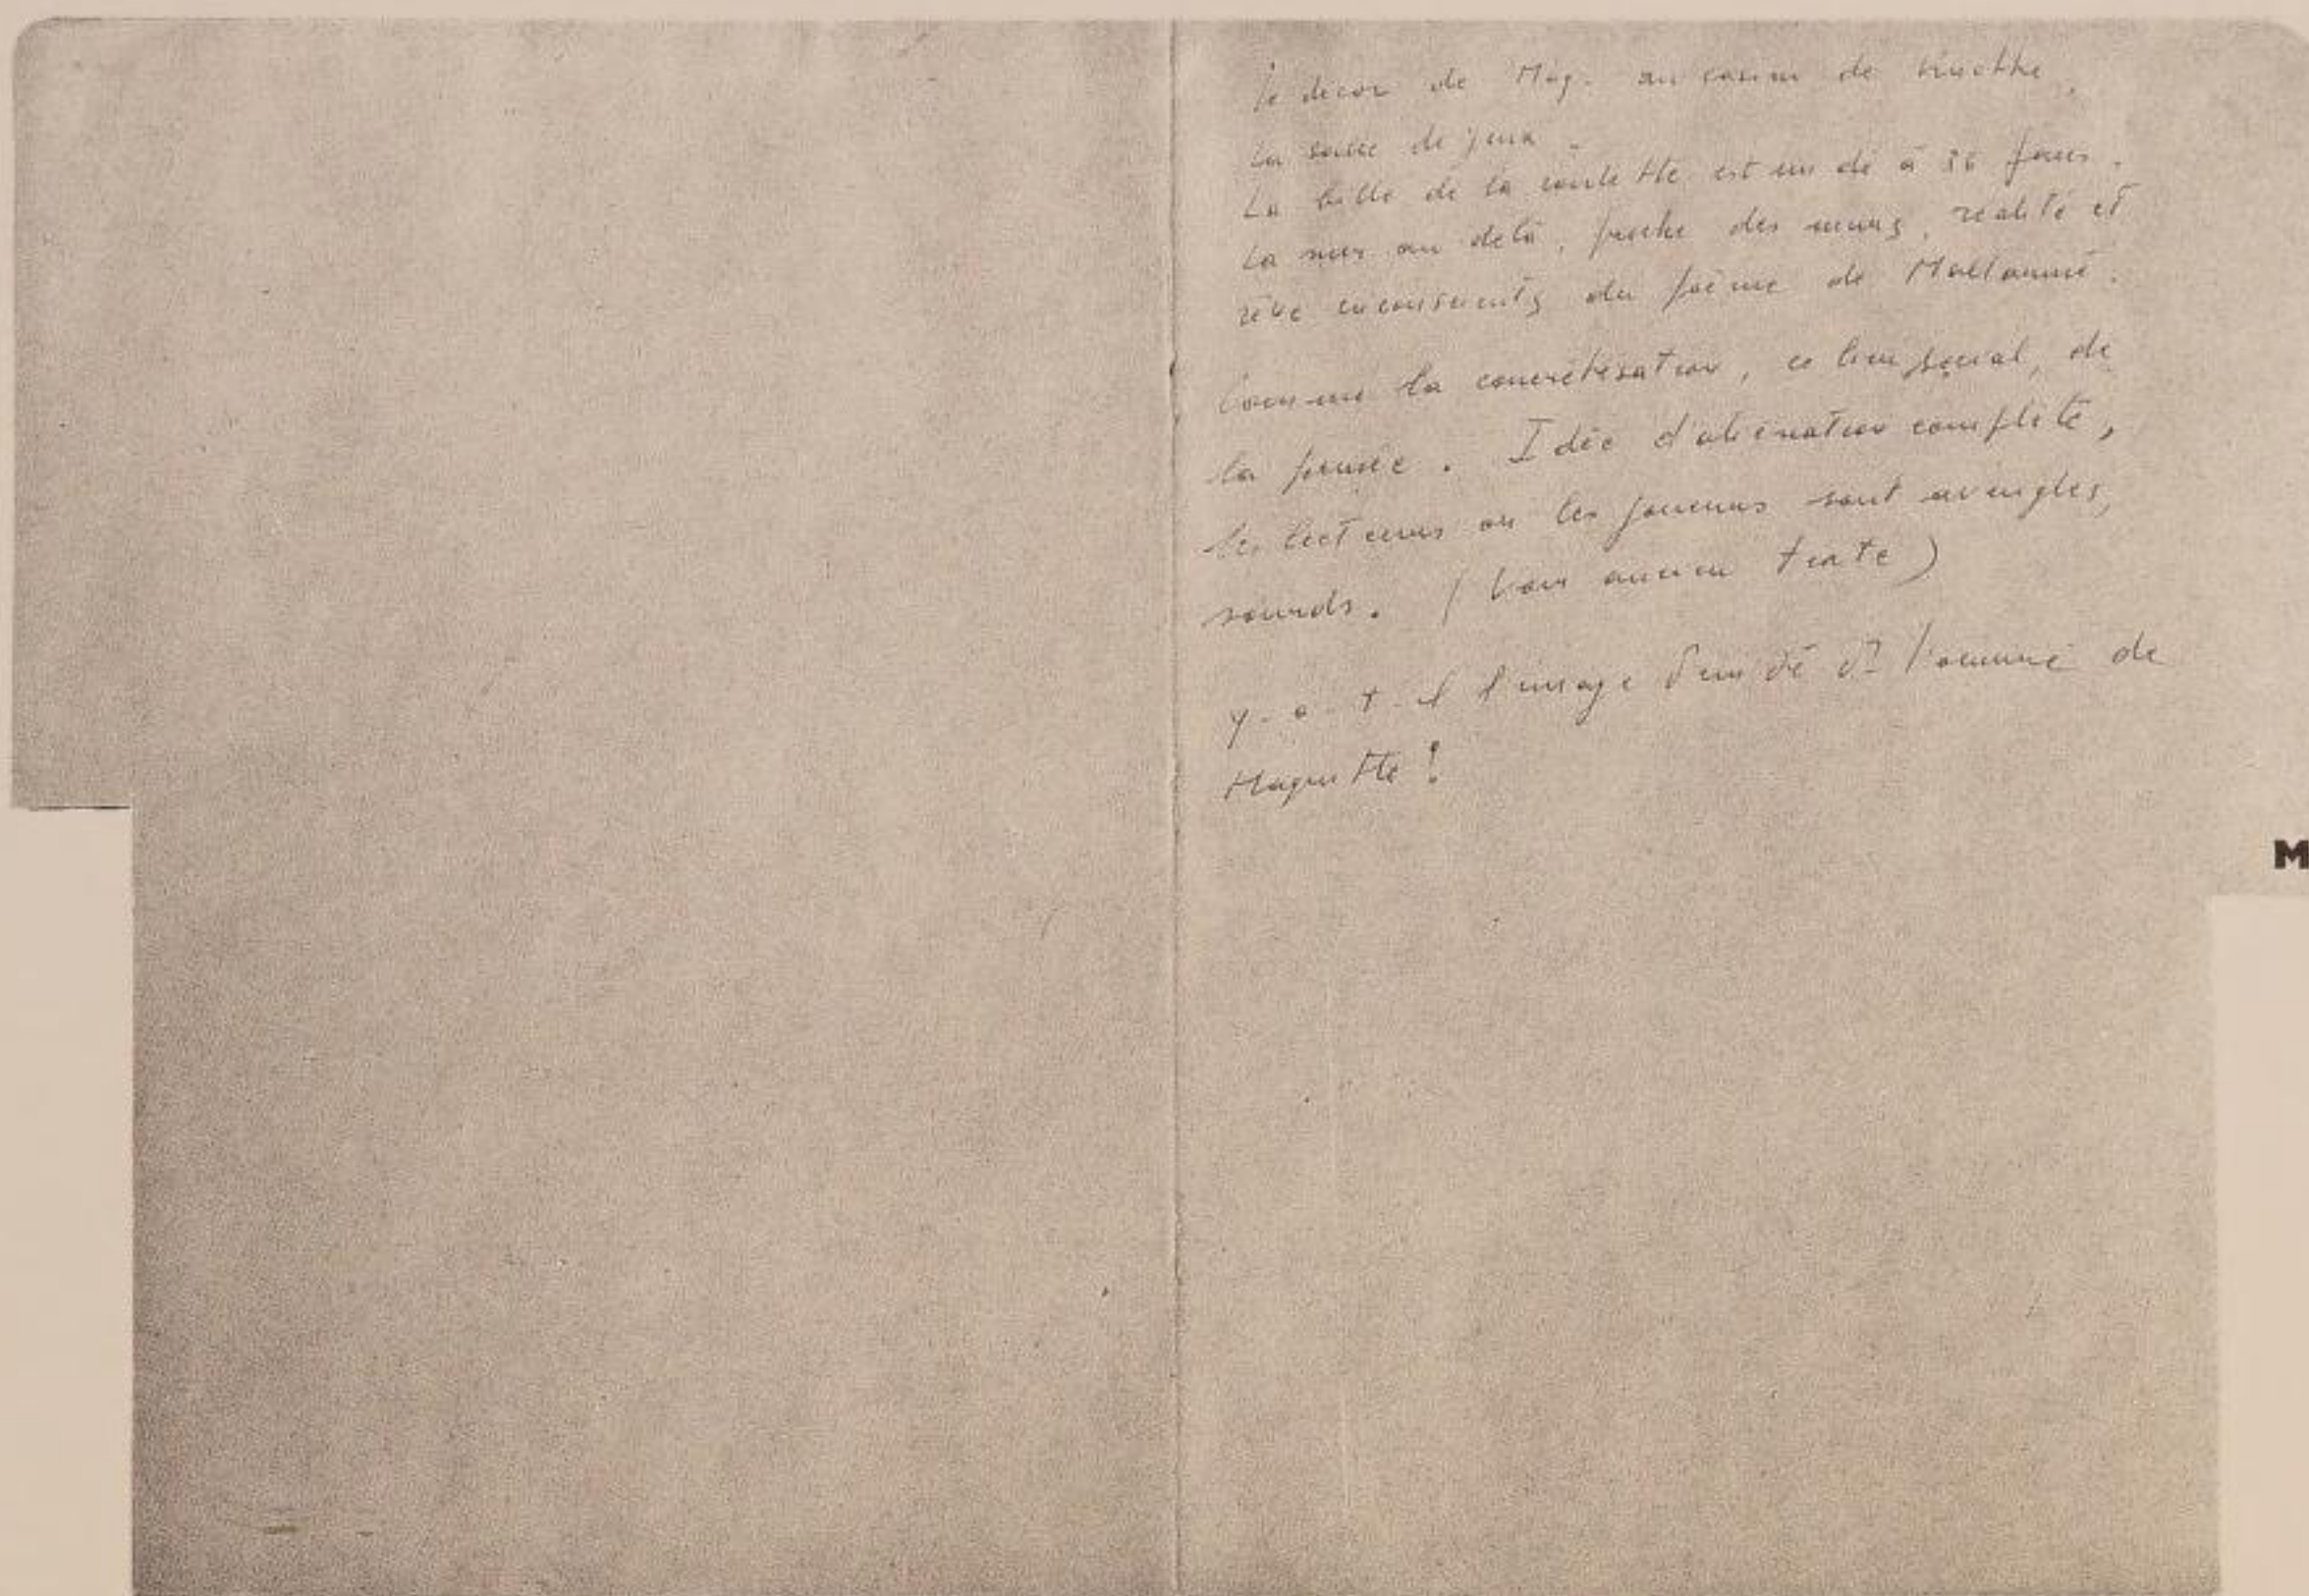 le décor de Mag. au casino de Knocke,
La salle de jeux.
La bille de la roulette est un dé à 36 faces.
La mer au delà, proche des murs, réalité et
rêve inconscients du poème de Mallarmé.
Comme la concrétisation, ce lieu social, de
la pensée. Idée d'aliénation complète,
les lecteurs ou les joueurs sont aveugles,
sourds. (Voir ancien texte)
y-a-t-il l'image d'un dé ds l'oeuvre de
Magritte?
M